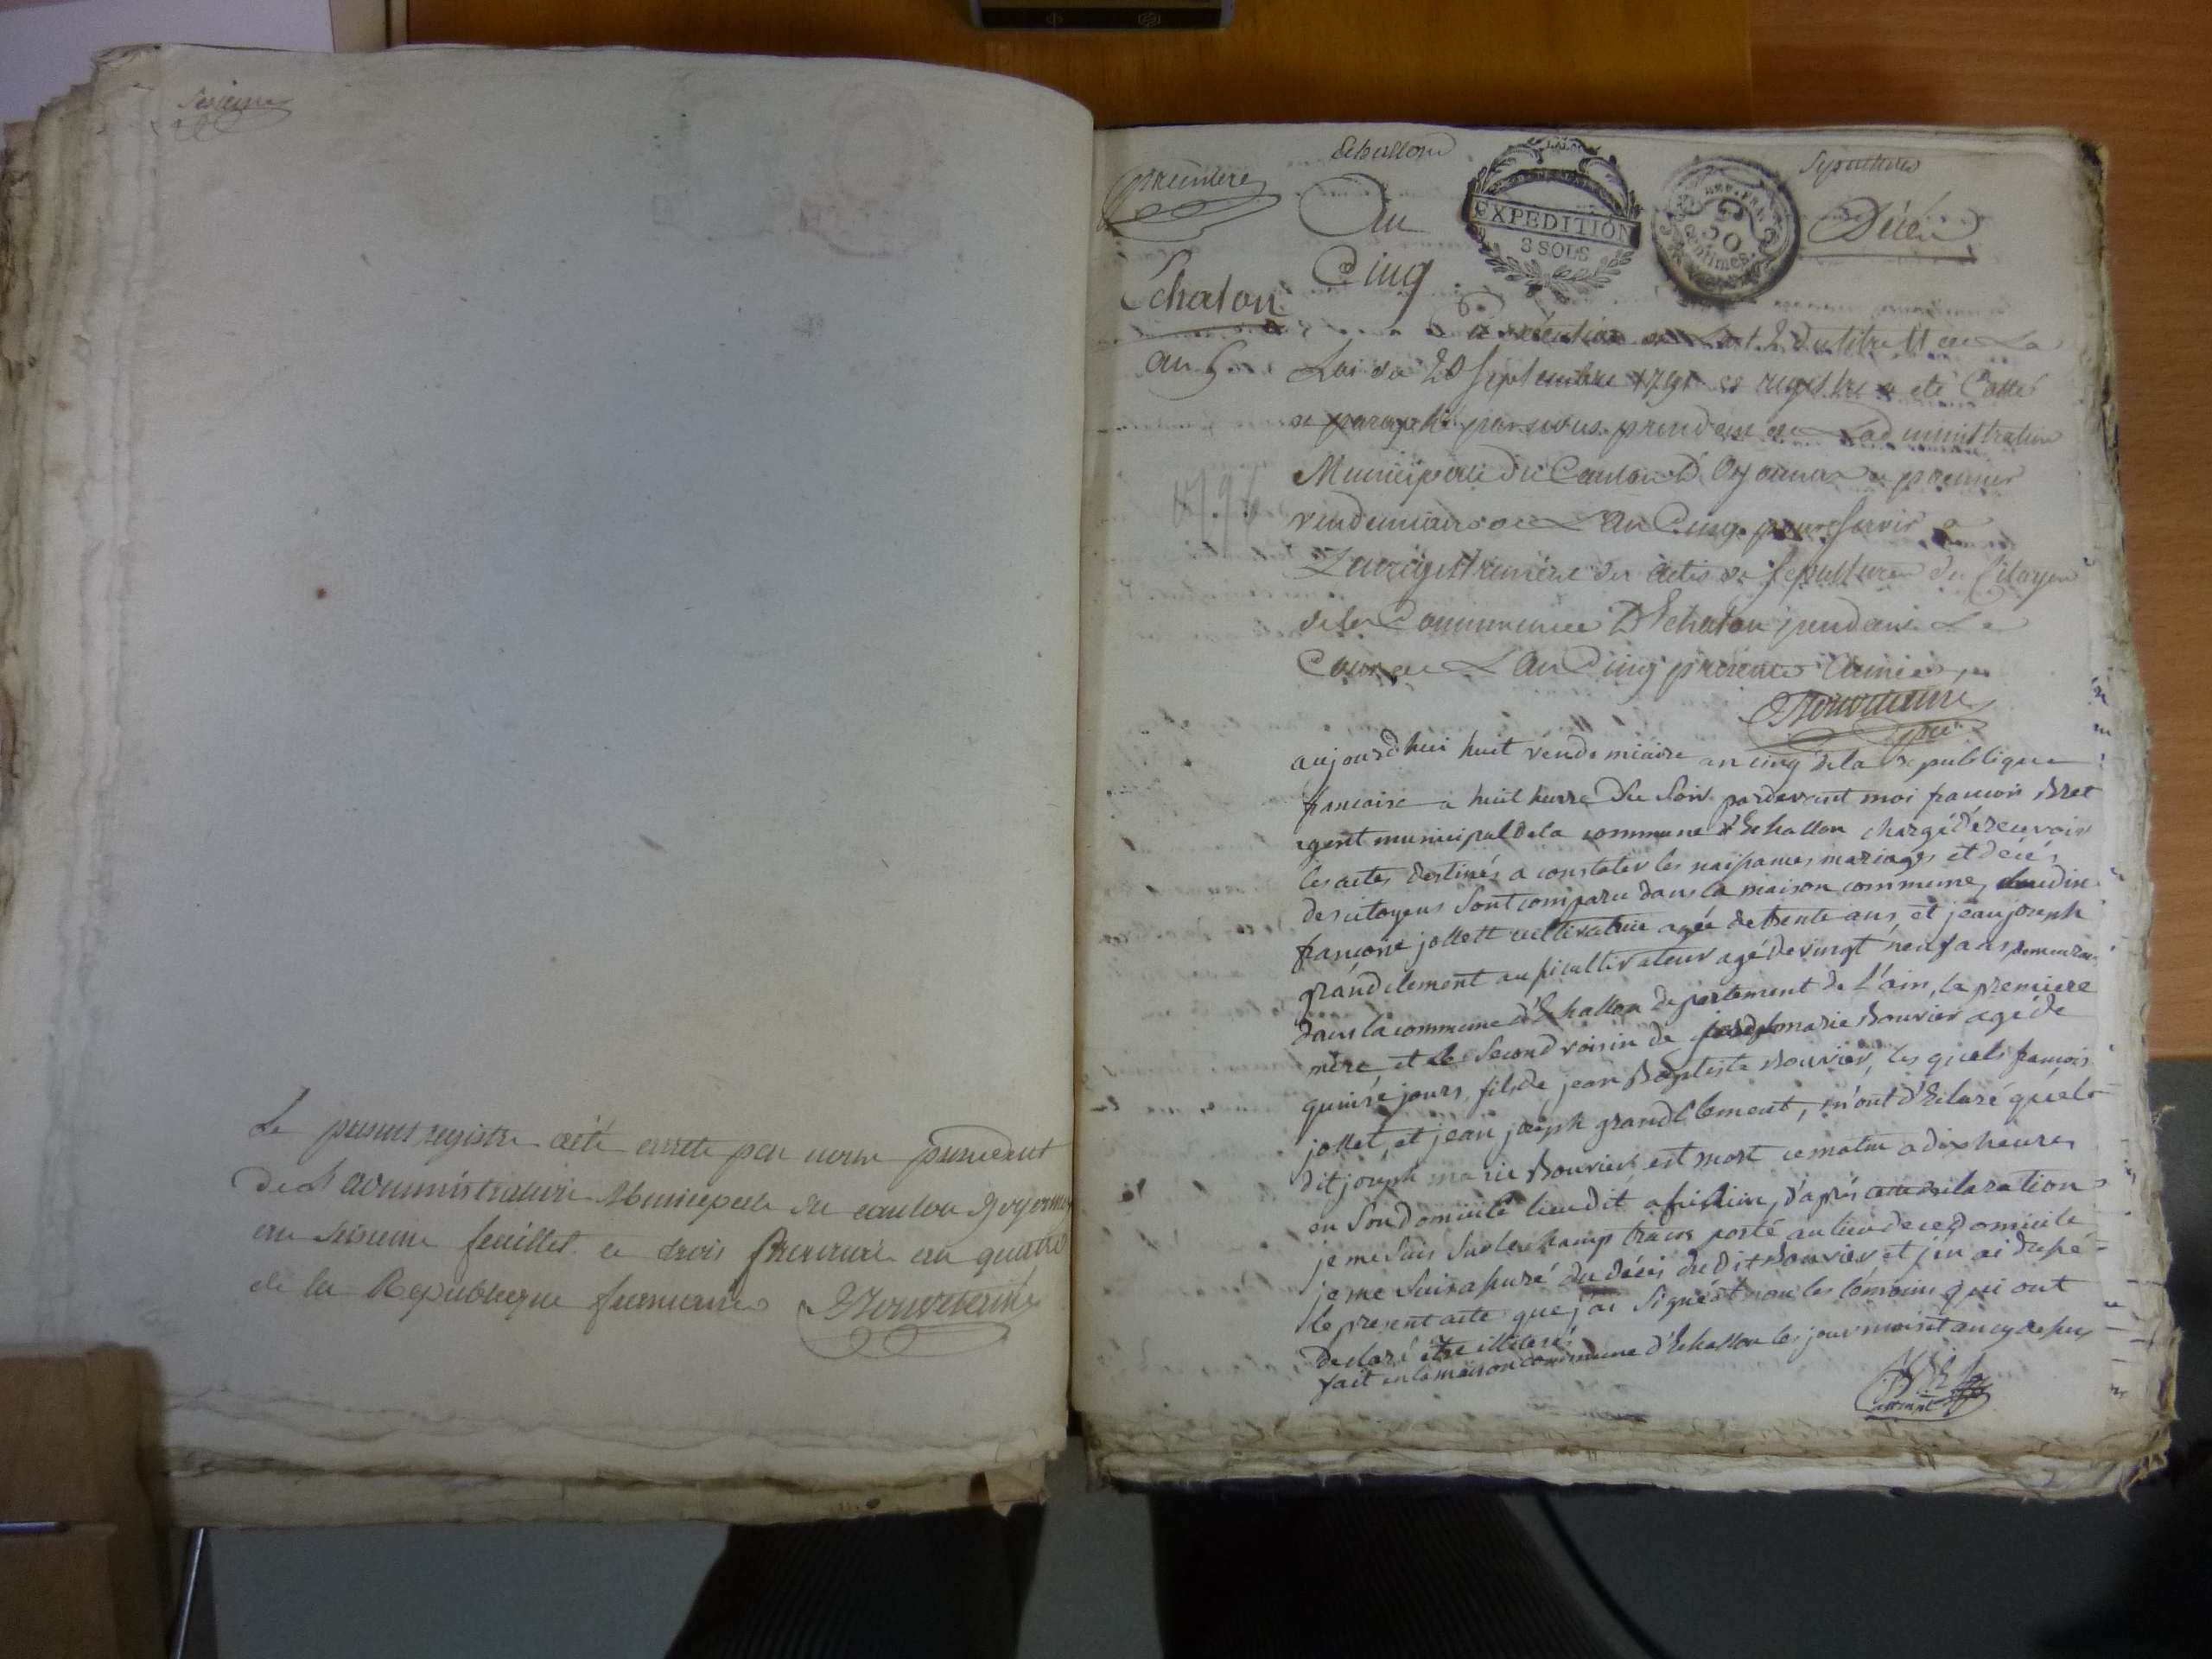 Le present registre a été arreté par nous president
de L'administration Municipale du canton d'oyonnax
au seizieme feuillet ce trois frimaire an quatre
de la Republique francaise
Echallon
Sepultures
premiere
An
EXPEDITION
3 SOLS
REP. FRA.
50
centimes
Décès
Cinq
Échalon
an 5
En exécution de L'art. 2 du titre 11 de La
Loi du 20 Septembre 179 ce registre a été Cotté
et paraphé par nous président de L'administration
Municipale du Canton D'Oyonnax ce premier
vendemiaire de L'An Cinq pour servir a
L'enregistrement des actes de sepulture des Citoyens
de la Commune D'Echalon pendant Le
Cours de L'An Cinq présente Année
1796
aujourd'hui huit vendemiaire an cinq de la Republique
francaise a huit heure du soir pardevant moi francois Bret
agent municipal de la commune d'Echallon chargé de recevoir
les actes destinés a constater les naissances mariages et décés
des citoyens sont comparu dans la maison commune,
francoise jollett cultivatrice agée de trente ans, et jean joseph
grandclement aussi cultivateur agé de vingt neuf ans demeurant
dans la commune d'Echallon departement de l'ain, la premiere
mère et le second voisin de joseph marie Bouvier agé de
quinse jours, fils de jean Baptiste Bouvier, les quels francoise
jollet, et jean joseph grandclement, m'ont déclaré que le
dit joseph marie Bouvier est mort ce matin a dix heures
en son domicile lieu dit, d'aprés cette declaration
je me suis sur le champ transporté au lieu de ce domicile
je me suis assuré du décés du dit Bouvier, et j'en ai dressé
le present acte que j'ai signé et non les temoins qui ont
declaré être illiteré
fait en la maison commune d'Echallon les jour mois et an cy dessus